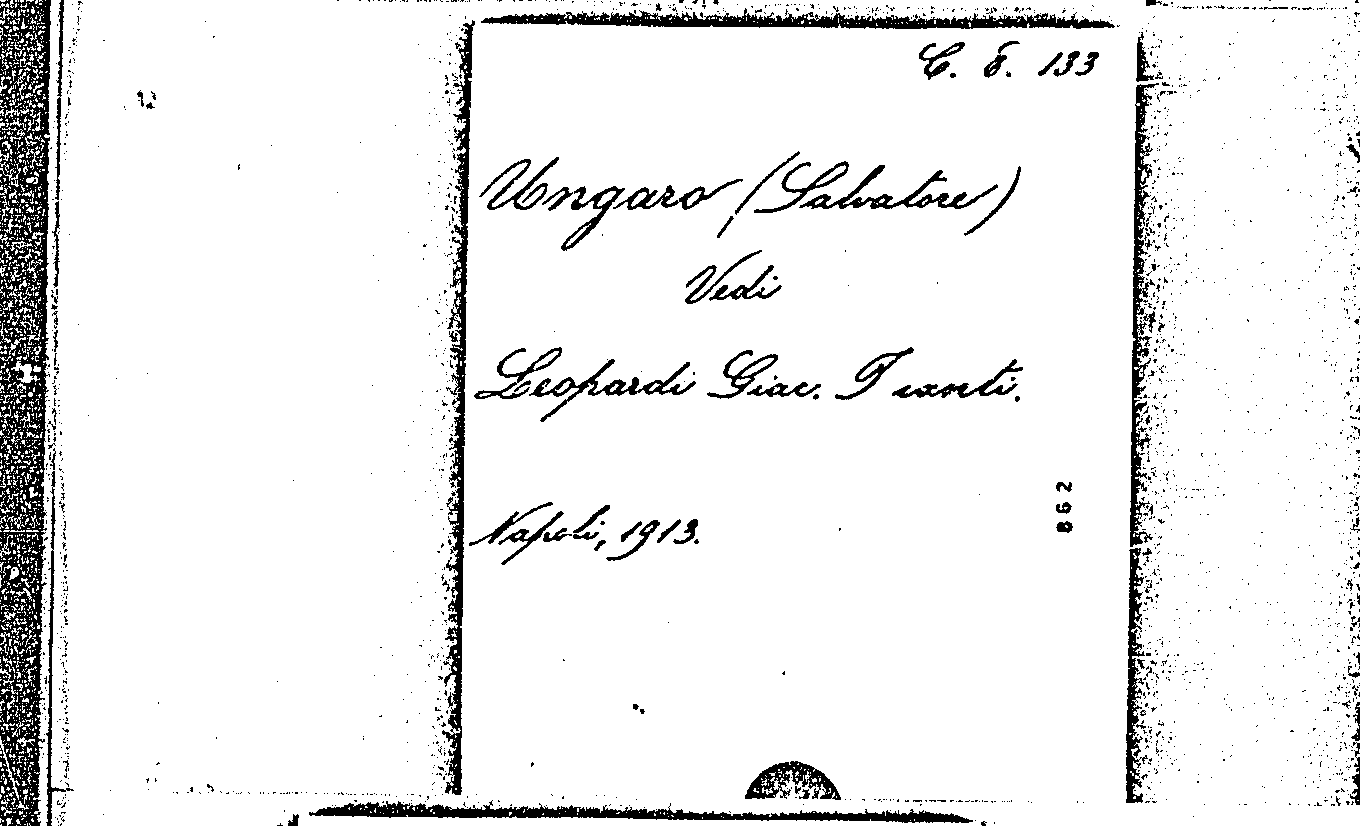 C. δ. 133
12
Ungaro (Salvatore)
Vedi
Leopardi Giac. I canti.
862
Napoli, 1913.